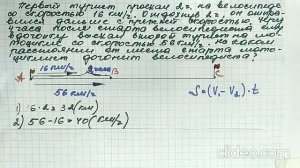 Первый турист проехал 2ч. на велосипеде
со скоростью 16 км/ч. Отдохнув 2ч., он отпра-
вился дальше с прежней скоростью. Через
4 часа после старта велосипедиста ему
вдогонку выехал второй турист на мо-
тоцикле со скоростью 56 км/ч. На каком
расстоянии от места старта мото-
циклист догонит велосипедиста?
16 км/ч 2 часа
A B C
56 км/ч
S=(V₁-V₂)·t
1) 16·2=32(км)
2) 56-16=40(км/ч)